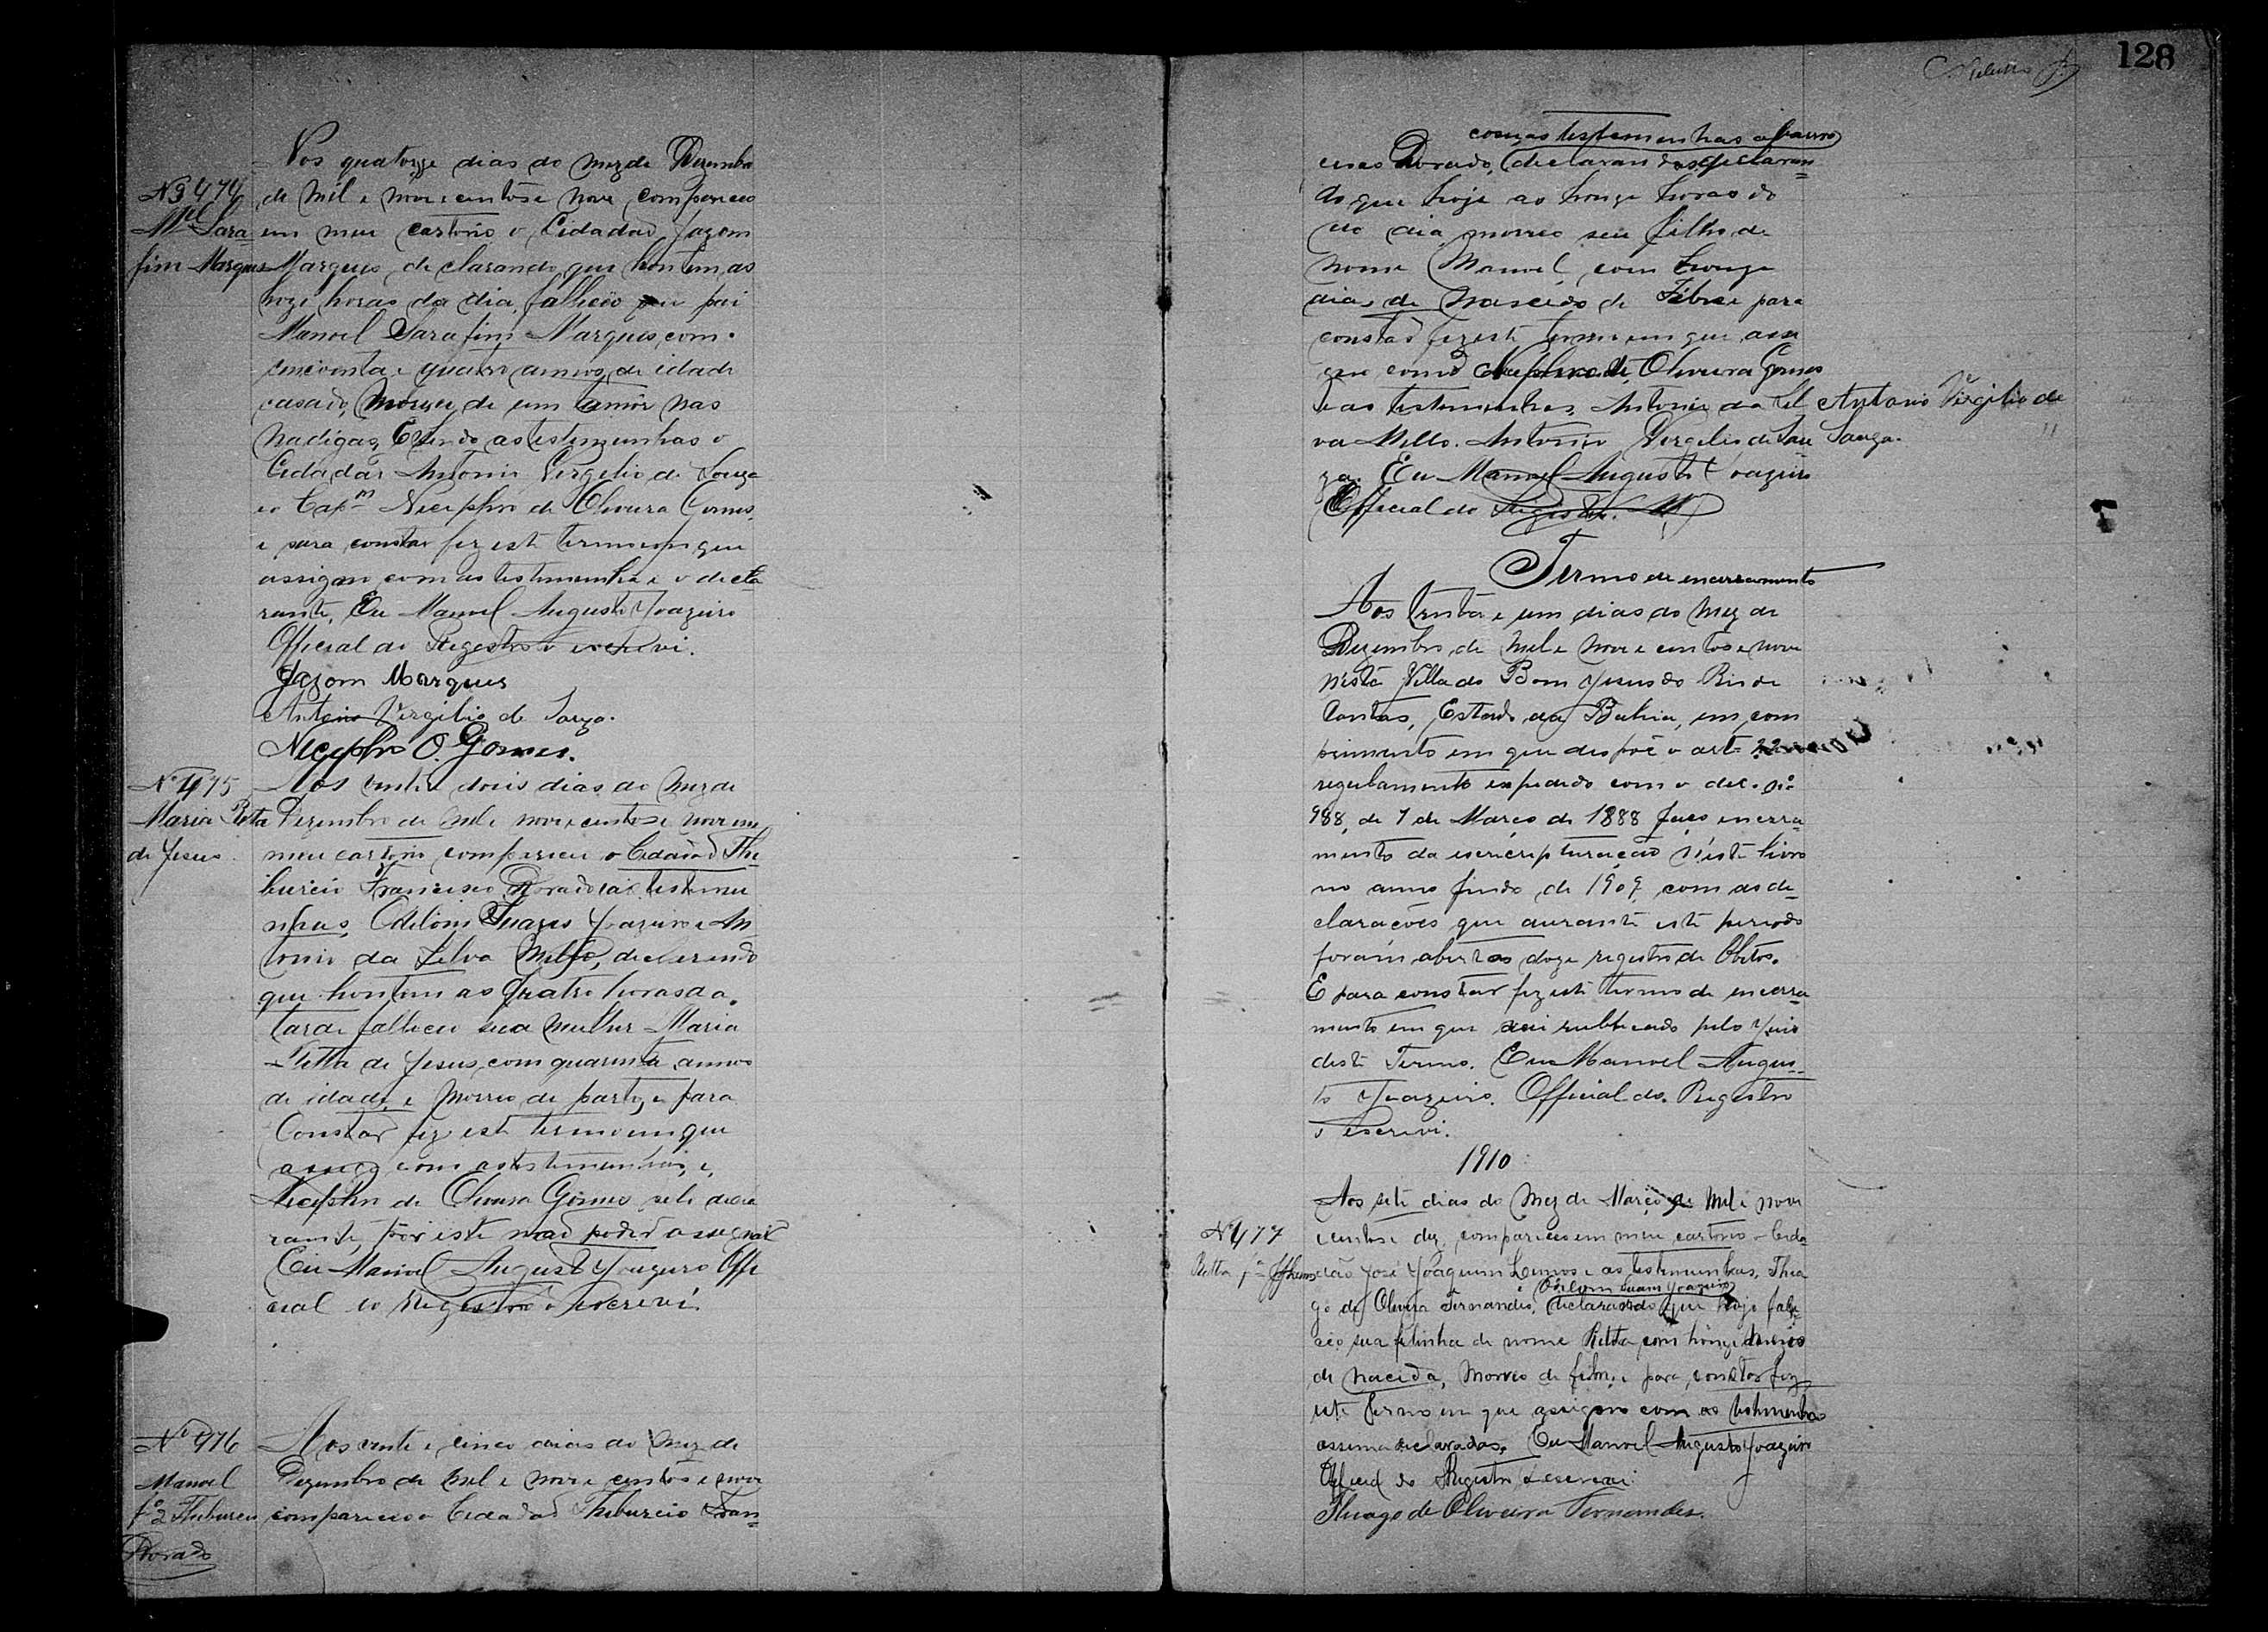 Nos quatorze dias do mez de Dezembro
Nº 474
de mil e nove centos e nove, compareceo
Mel Sara=
em meu cartorio o Cidadaõ Jazom
fim Marques
Marques, declarando que hontem as
horas do dia falleceo seu pai
Manoel Sarafim Marques, com
cincoenta e quatro annos de idade
casado, morreu de um tumôr nas
nadigas, Sendo as testemunhas o
Cidadaõ Antonio Virgilio de Souza
e o Capm Nicephro de Oliveira Gomes,
e para constar fiz este termo em que
assigno com as testemunhas e o decla
rante, Eu Manoel Augusto Joazeiro
Official do Registro o escrevi.
Jazom Marques
Antonio Virgilio de Souza.
Nicephro O. Gomes.
Nº 475
Aos vinte dois dias do mez de
Maria Ritta
Dezembro de mil e nove centos e nove em
de Jesus
meu cartorio compareceu o Cidadaõ Thi=
burcio Francisco Dorado e as testemu
nhas, Odilom Suares Joazeiro e An
tonio da Silva Mello, declarando
que hontem as quatro horas da
tarde falleceu sua mulher Maria
Ritta de Jesus, com quarenta annos
de idade, e morreo de parto, e para
Constar fiz este termo em que
assigno com as testemunhas, e,
Nicephro de Oliveira Gomes pelo decla
rante, por este naõ poder assignar
Eu Manoel Augusto Joazeiro Offi
cial do Registro o escrevi.
Nº 476
Aos vinte e cinco dias do mez de
Manoel
Dezembro de mil e nove centos e nove
fº 2 Thiburcio
compareceo o Cidadaõ Thiburcio Fran=
Dorado
128
com as testemunhas abaixo
cisco Dorado, declaradas declaran=
do que hoje as honze horas do
do dia morreo seu filho de
nome Manoel, com honze
dias de nascido de Febre e para
constar fiz este termo em que assi
gno com o Nicephro de Oliveira Gomes
e as testemunhas, Antonio da Sil
Antonio Virgilio de
va Mello. Antonio Virgilio de Sou
Souza.
za. Eu Manoel Augusto Joazeiro
Official do Registro.
Termo de encerramento
Aos trinta e um dias do mez de
Dezembro de mil e nove centos e nove
nesta Villa do Bom Jesus do Rio de
Contas, Estado da Bahia, em com
primento em que dispoẽ o art. 22
regulamento expedido com o dec. nº
988, de 7 de Março de 1888 faço encerra=
mento da escricripturaçaõ n'este livro
no anno findo de 1909, com as de
claraçoẽs que durante este periodo
foram abertas doze registro de Obitos.
E para constar fiz este termo de encerra
mento em que vai rubricado pelo Juiz
deste Termo. Eu Manoel Augus=
to Joazeiro. Official do Registro
o escrevi.
1910
Aos sete dias do mez de Março de mil e nove
Nº 477
centos e dez, compareceo em meu cartorio o Cida
Ritta fª
daõ José Joaquim Lemos e as testemunhas, Thia
Odilom Suares Joazeiro
go de Oliveira Fernandes, declarando que hoje fale
ceo sua filinha de nome Ritta com honze mezes
de nacida, morreo de febre, e para constar fiz
este termo em que assigno com as testemunhas
assima declaradas. Eu Manoel Augusto Joazeiro
Official do Registro o escrevi.
Thiago de Oliveira Fernandes.